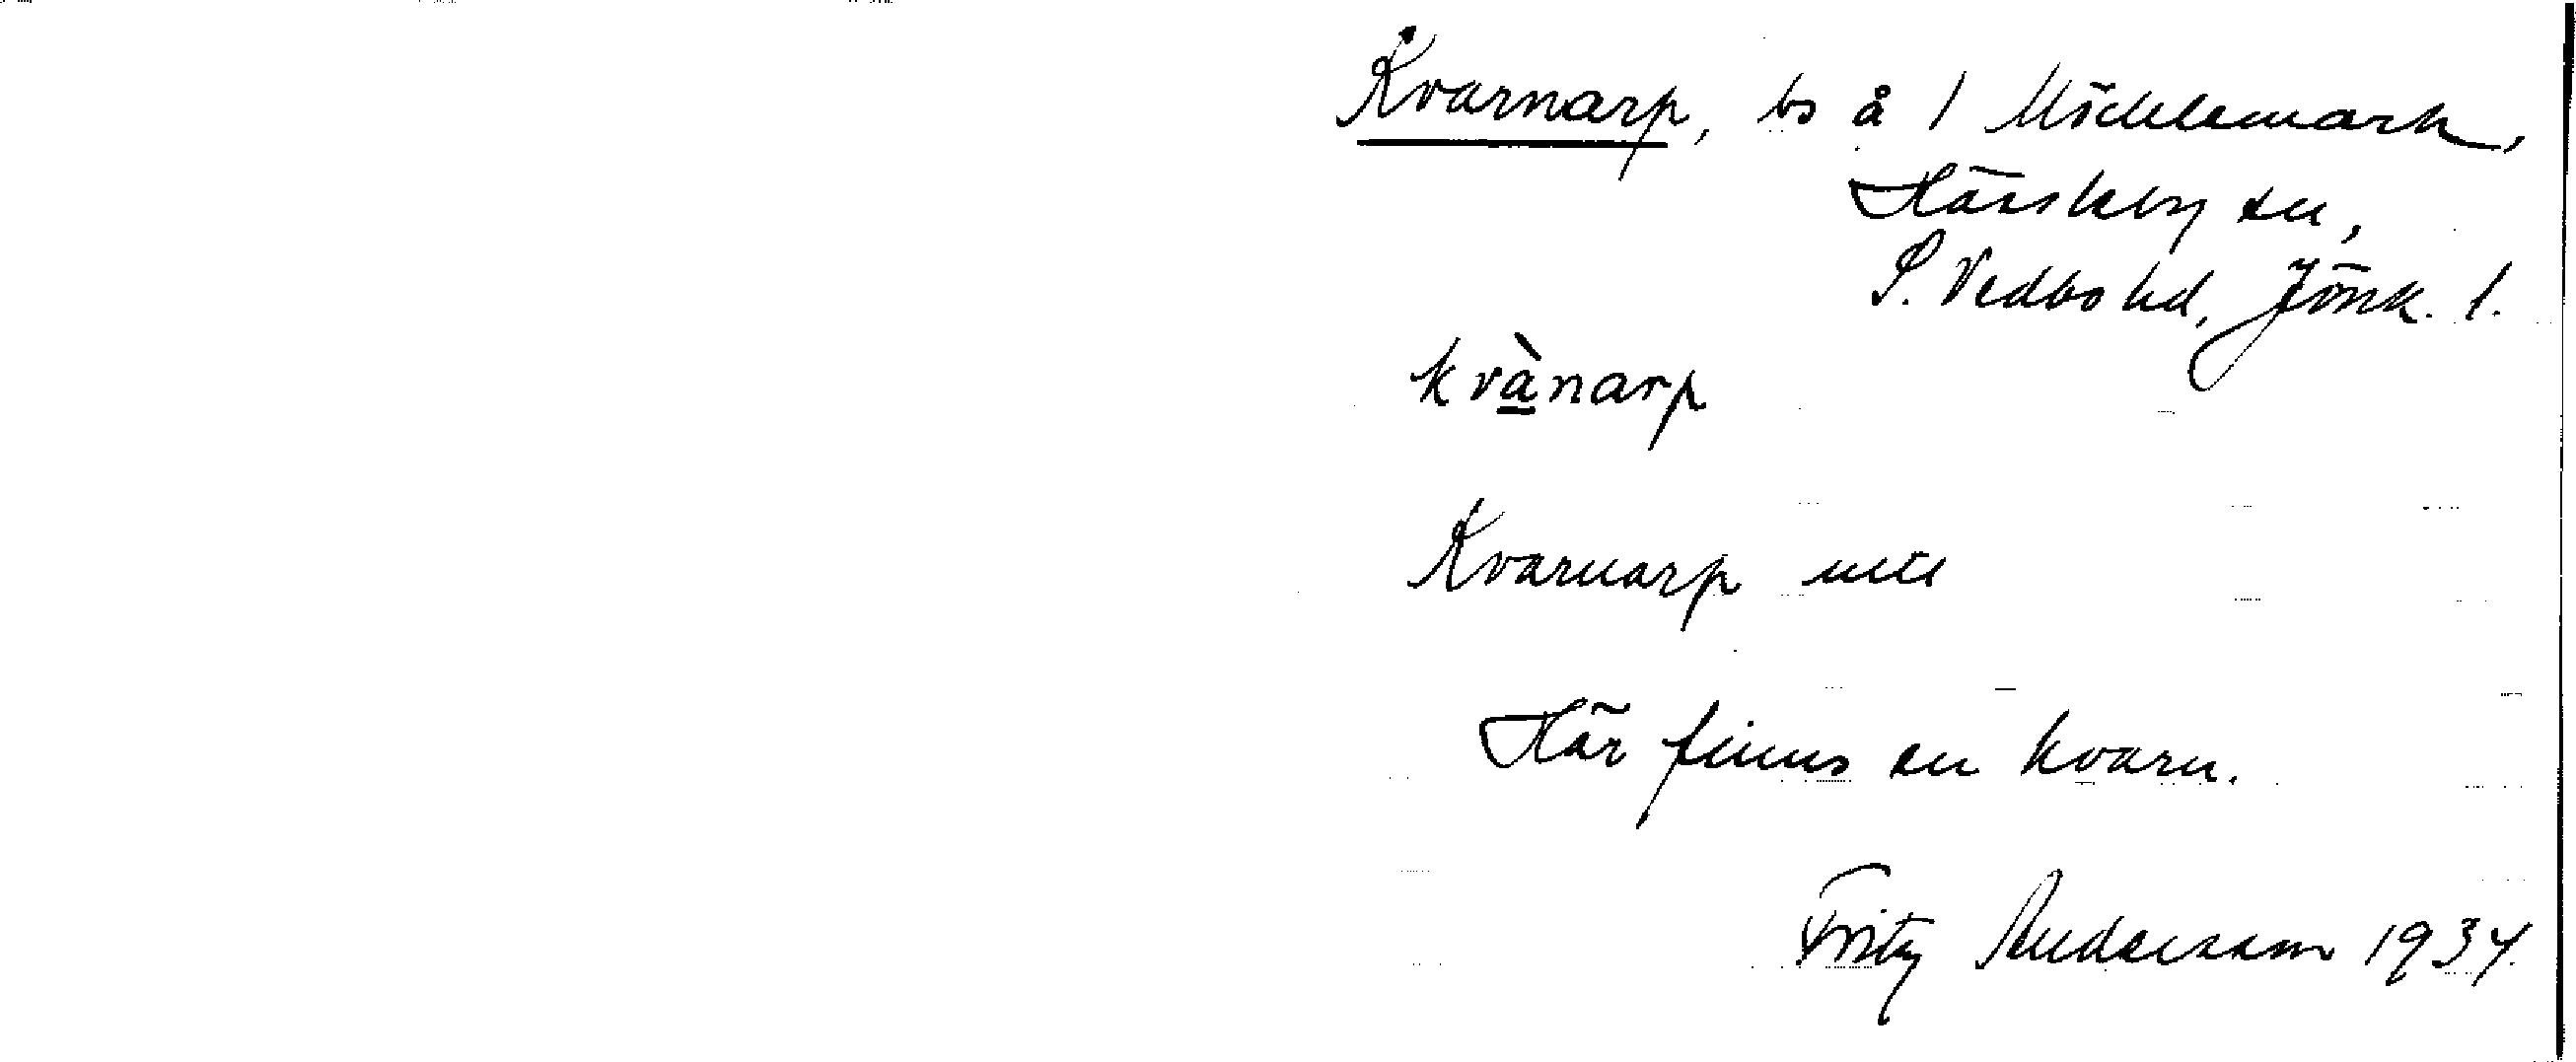 Kvarnarp, bs å 1 Möcklemark,
Hässleby sn,
S. Vedbo hd, Jönk. l.
kvànarp
Kvarnarp uttl
Här finns en kvarn.
Fritz Andersson 1934